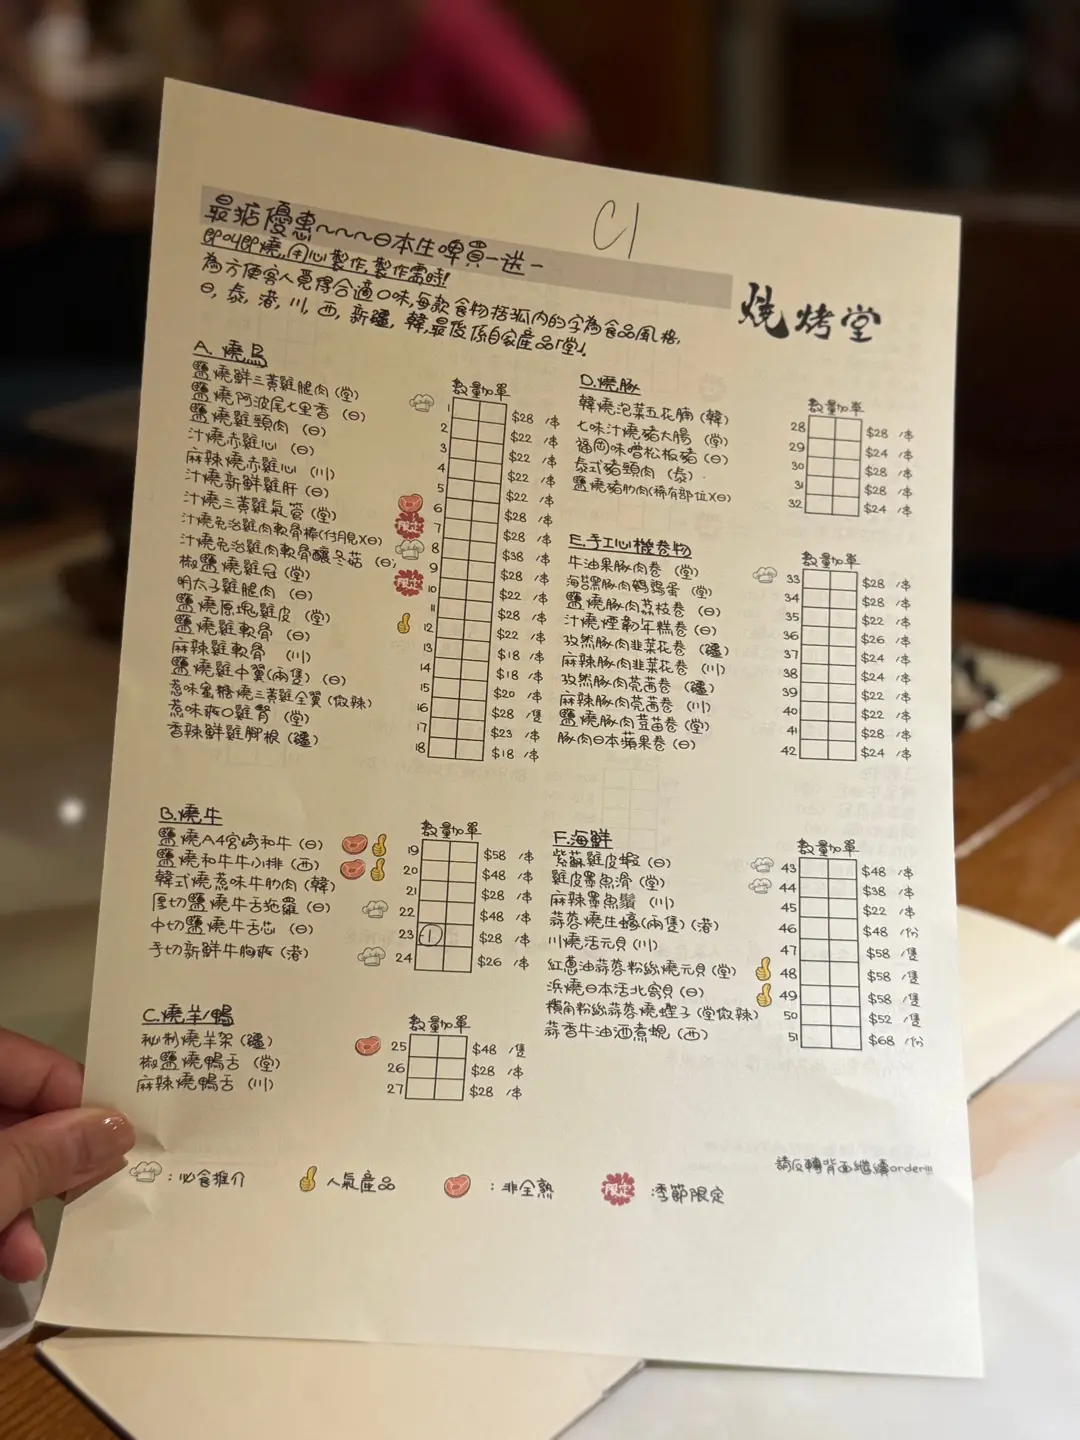 C1
最掂優惠~~~日本生啤買一送一
即叫即燒,用心製作,製作需時!
為方便客人覓得合適口味,每款食物括弧內的字為食品風格,
日, 泰, 港, 川, 西, 新疆, 韓,最後係自家產品「堂」.
燒烤堂
A. 燒鳥
數量加單
鹽燒鮮三黃雞腿肉 (堂) 1 $28 /串
鹽燒阿波尾七里香 (日) 2 $22 /串
鹽燒雞頸肉 (日) 3 $22 /串
汁燒赤雞心 (日) 4 $22 /串
麻辣燒赤雞心 (川) 5 $22 /串
汁燒新鮮雞肝 (日) 6 $28 /串
汁燒三黃雞氣管 (堂) 限定 7 $28 /串
汁燒免治雞肉軟骨棒(付月見)(日) 8 $38 /串
汁燒免治雞肉軟骨釀冬菇 (日) 9 $28 /串
椒鹽燒雞冠 (堂) 限定 10 $22 /串
明太子雞腿肉 (日) 11 $28 /串
鹽燒原塊雞皮 (堂) 12 $22 /串
鹽燒雞軟骨 (日) 13 $18 /串
麻辣雞軟骨 (川) 14 $18 /串
鹽燒雞中翼(兩隻) (日) 15 $20 /串
惹味蜜糖燒三黃雞全翼 (微辣) 16 $28 /隻
惹味爽口雞腎 (堂) 17 $23 /串
香辣鮮雞腳根 (疆) 18 $18 /串
B.燒牛
數量加單
鹽燒A4宮崎和牛 (日) 19 $58 /串
鹽燒和牛牛小排 (西) 20 $48 /串
韓式燒惹味牛肋肉 (韓) 21 $28 /串
厚切鹽燒牛舌拖羅 (日) 22 $48 /串
中切鹽燒牛舌芯 (日) 23 1 $28 /串
手切新鮮牛胸爽 (港) 24 $26 /串
C.燒羊/鴨
數量加單
秘制燒羊架 (疆) 25 $48 /隻
椒鹽燒鴨舌 (堂) 26 $28 /串
麻辣燒鴨舌 (川) 27 $28 /串
D.燒豚
數量加單
韓燒泡菜五花腩 (韓) 28 $28 /串
七味汁燒豬大腸 (堂) 29 $24 /串
福岡味噌松板豬 (日) 30 $28 /串
泰式豬頸肉 (泰) 31 $28 /串
鹽燒豬肋肉(稀有部位)(日) 32 $24 /串
E.手工心機卷物
數量加單
牛油果豚肉卷 (堂) 33 $28 /串
海苔黑豚肉鵪鶉蛋 (堂) 34 $28 /串
鹽燒豚肉荔枝卷 (日) 35 $22 /串
汁燒煙韌年糕卷 (日) 36 $26 /串
孜然豚肉韭菜花卷 (疆) 37 $24 /串
麻辣豚肉韭菜花卷 (川) 38 $24 /串
孜然豚肉芫茜卷 (疆) 39 $22 /串
麻辣豚肉芫茜卷 (川) 40 $22 /串
鹽燒豚肉荳苗卷 (堂) 41 $28 /串
豚肉日本蘋果卷 (日) 42 $24 /串
F.海鮮
數量加單
紫蘇雞皮蝦 (日) 43 $48 /串
雞皮墨魚滑 (堂) 44 $38 /串
麻辣墨魚鬚 (川) 45 $22 /串
蒜蓉燒生蠔(兩隻) (港) 46 $48 /份
川燒活元貝 (川) 47 $58 /隻
紅蔥油蒜蓉粉絲燒元貝 (堂) 48 $58 /隻
浜燒日本活北寄貝 (日) 49 $58 /隻
欖角粉絲蒜蓉燒蟶子 (堂微辣) 50 $52 /隻
蒜香牛油酒煮蜆 (西) 51 $68 /份
請反轉背面繼續order!!!
:必食推介
人氣產品
:非全熟
限定
:季節限定